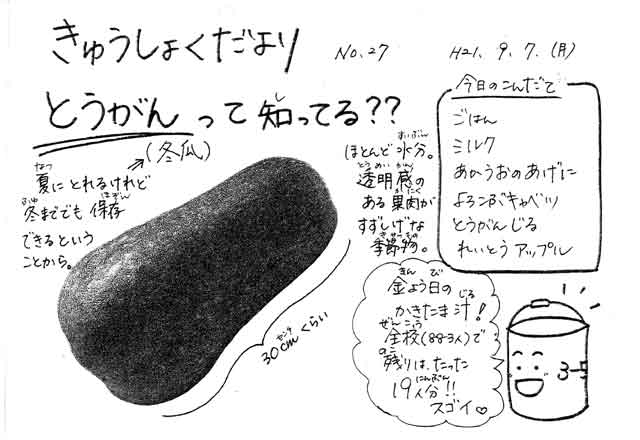 きゅうしょくだより
No.27
H21. 9. 7. (月)
とうがん って 知ってる??
(冬瓜)
夏にとれるけれど
冬まででも 保存
できるという
ことから。
ほとんど水分。
透明感の
ある 果肉が
すずしげな
季節物。
30cmくらい
今日のこんだて
ごはん
ミルク
あかうおのあげに
よろこぶキャベツ
とうがんじる
れいとう アップル
金よう日の
かきたま汁!
全校(883人)で
残りは、たった
19人分!!
スゴイ♡